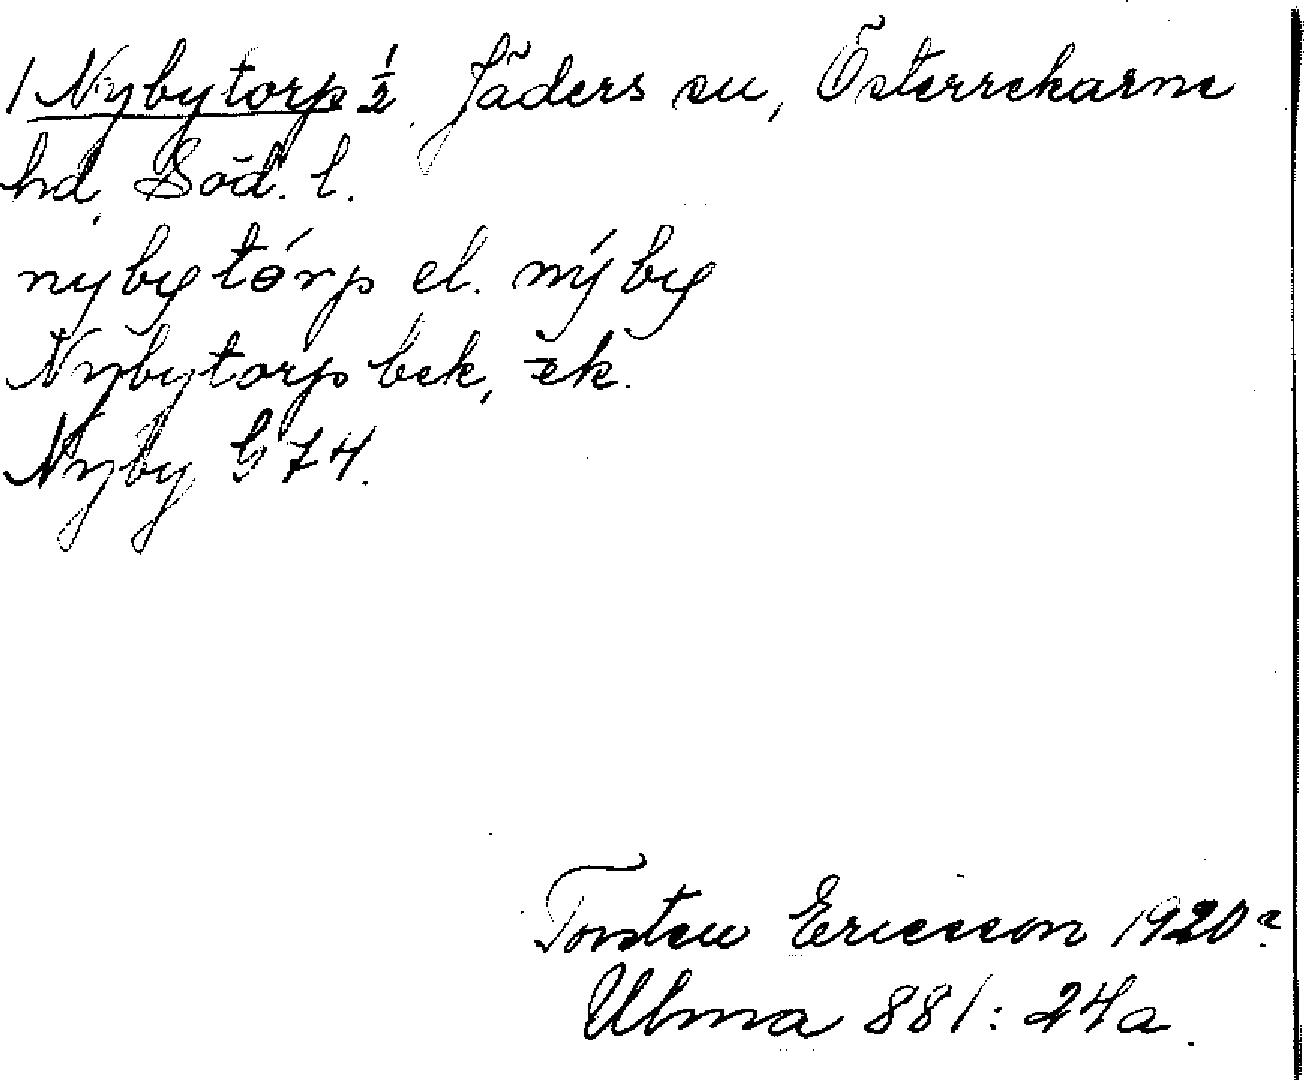 1 Nybytorp ½ Jäders sn, Österrekarne
hd, Söd. l.
nybytórp el. nýby
Nybytorp bek, ek.
Nyby G 74.
Torsten Ericsson 1920?
Ulma 881: 24a.